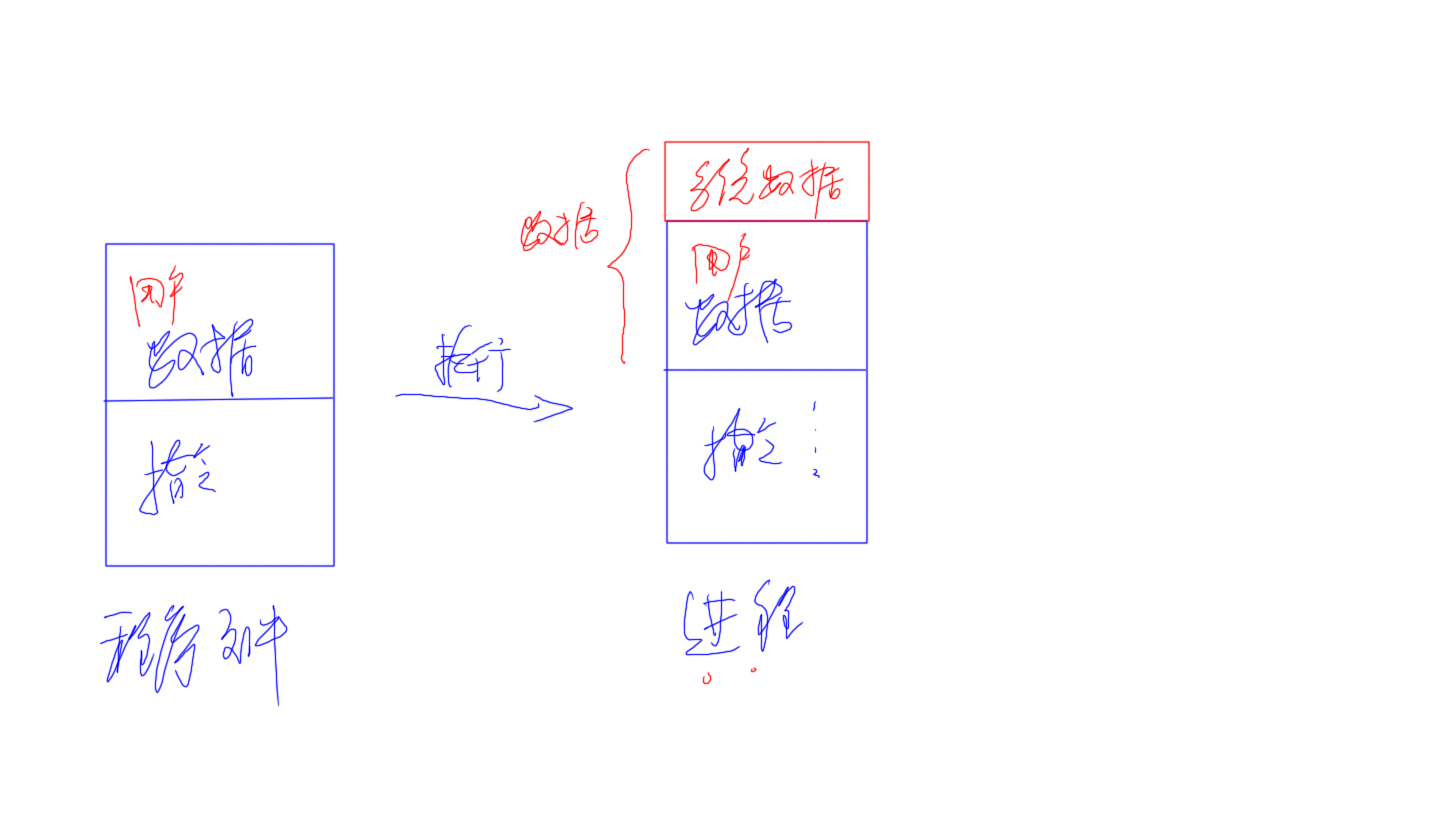 用户
数据
指令
程序文件
执行
数据
系统数据
用户
数据
指令
进程